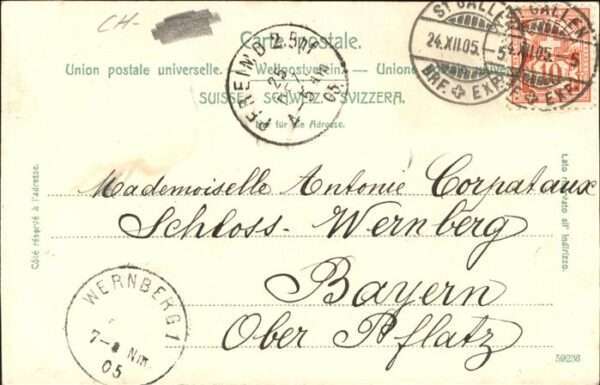 CH-
Carte postale.
Union postale universelle. — Weltpostverein. — Unione
SUISSE. SCHWEIZ. SVIZZERA.
für die Adresse.
ST GALLEN
24.XII.05.—5
BRF. EXP.
ST GALLEN
24.XII.05.—5
BRF. EXP.
10
25
4-5 Nm
05
Mademoiselle Antonie Corpataux
Schloss-Wernberg
Bayern
Ober Pflatz
Côté réservé à l'adresse.
Lato riservato all' indirizzo.
WERNBERG 1
7-8 Nm
05
59236